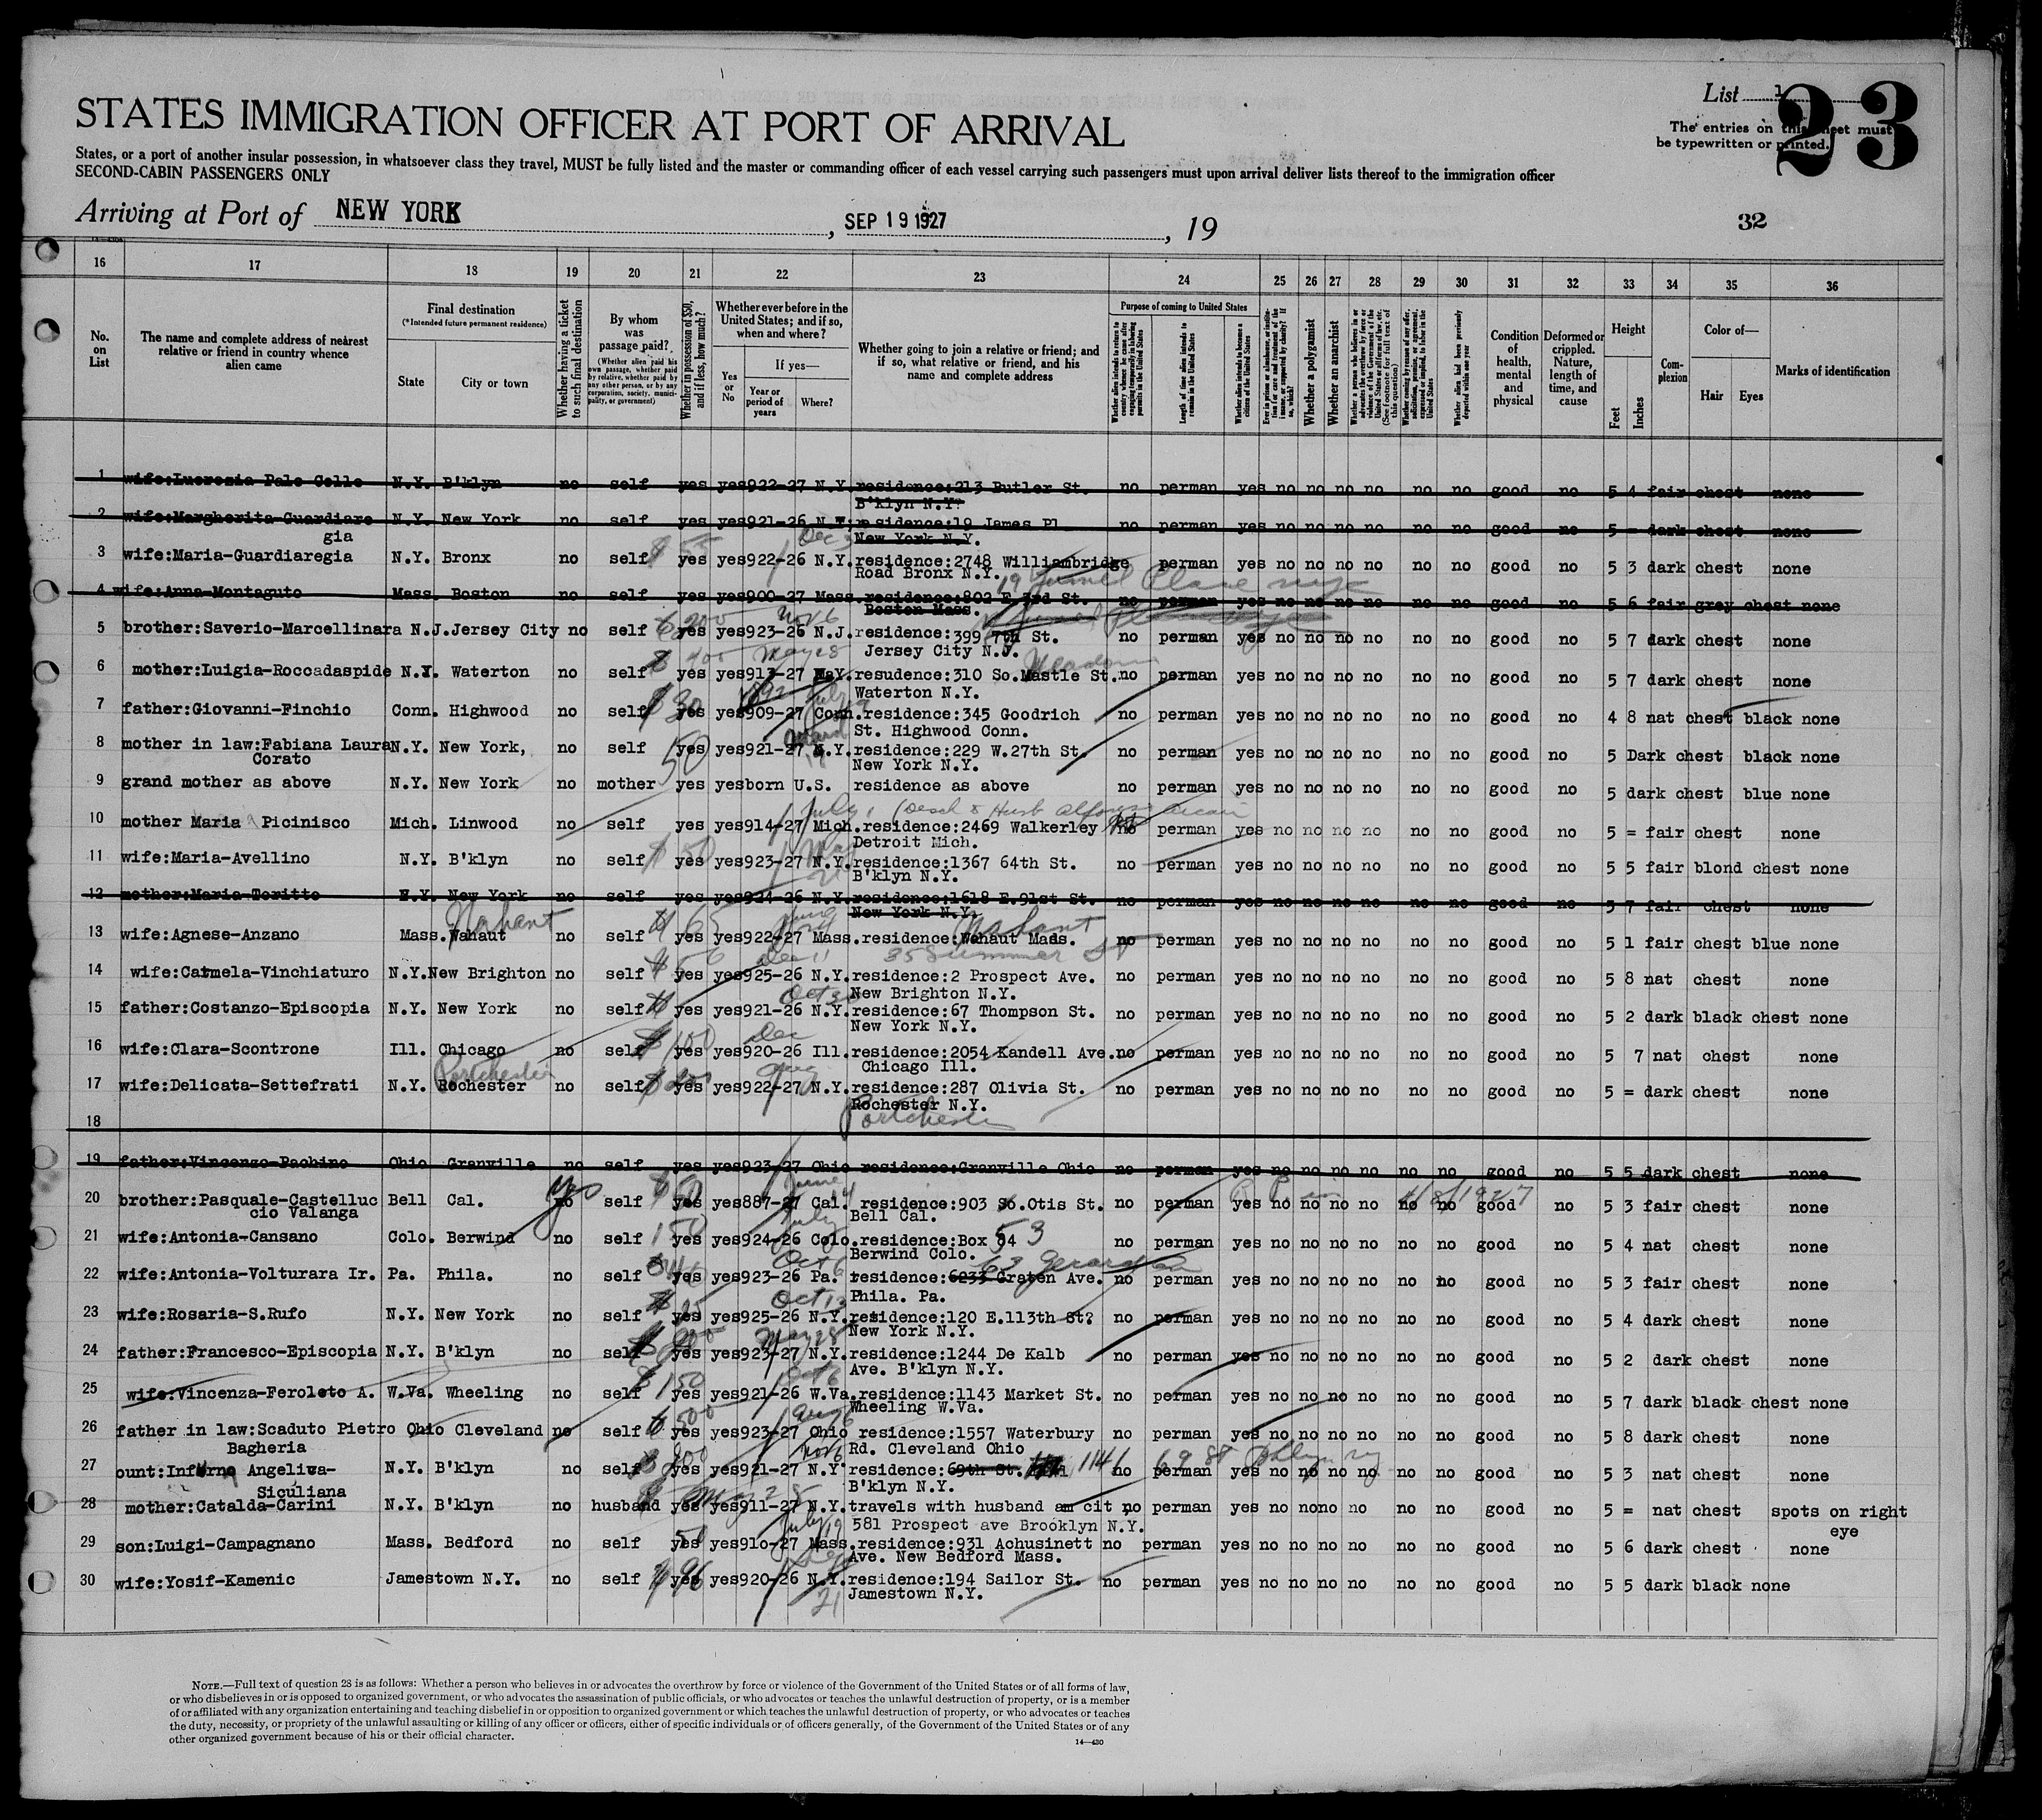 List 1
23
STATES IMMIGRATION OFFICER AT PORT OF ARRIVAL
The entries on this sheet must
be typewritten or printed.
States, or a port of another insular possession, in whatsoever class they travel, MUST be fully listed and the master or commanding officer of each vessel carrying such passengers must upon arrival deliver lists thereof to the immigration officer
SECOND-CABIN PASSENGERS ONLY
Arriving at Port of NEW YORK, SEP 19 1927, 19
32
16 17 18 19 20 21 22 23 24 25 26 27 28 29 30 31 32 33 34 35 36
No. on List
The name and complete address of nearest relative or friend in country whence alien came
Final destination
(*Intended future permanent residence)
State City or town
Whether having a ticket to such final destination
By whom was passage paid?
(Whether alien paid his own passage, whether paid by relative, whether paid by any other person, or by any corporation, society, municipality, or government)
Whether in possession of $50, and if less, how much?
Whether ever before in the United States; and if so, when and where?
Yes or No
If yes—
Year or period of years
Where?
Whether going to join a relative or friend; and if so, what relative or friend, and his name and complete address
Purpose of coming to United States
Length of time alien intends to remain in the United States
Whether alien intends to become a citizen of the United States
Whether a polygamist
Whether an anarchist
Whether alien had been previously deported within one year
Condition of health, mental and physical
Deformed or crippled. Nature, length of time, and cause
Height
Feet Inches
Complexion
Color of—
Hair Eyes
Marks of identification
1 wife:Lucrezia Palo Colle N.Y. B'klyn no self yes yes922-27 N.Y. residence:213 Butler St. no perman yes no no no no no no good no 5 4 fair chest none
B'klyn N.Y.
2 wife:Margherita-Guardiare N.Y. New York no self yes yes921-26 N.Y. residence:19 James Pl no perman yes no no no no no no good no 5 = dark chest none
gia New York N.Y.
3 wife:Maria-Guardiaregia N.Y. Bronx no self yes yes922-26 N.Y. residence:2748 Williambridge perman yes no no no no no no good no 5 3 dark chest none
Road Bronx N.Y.
4 wife:Anna-Montaguto Mass. Boston no self yes yes900-27 Mass. residence:802 E.3rd St. no perman yes no no no no no no good no 5 6 fair grey chest none
Boston Mass.
5 brother:Saverio-Marcellinara N.J. Jersey City no self yes yes923-26 N.J. residence:399 7th St. no perman yes no no no no no no good no 5 7 dark chest none
Jersey City N.J.
6 mother:Luigia-Roccadaspide N.Y. Waterton no self yes yes913-27 N.Y. resudence:310 So.Mastle St. no perman yes no no no no no no good no 5 7 dark chest none
Waterton N.Y.
7 father:Giovanni-Finchio Conn. Highwood no self yes yes909-27 Conn. residence:345 Goodrich no perman yes no no no no no no good no 4 8 nat chest black none
St. Highwood Conn.
8 mother in law:Fabiana Laura N.Y. New York, no self yes yes921-27 N.Y. residence:229 W.27th St. no perman yes no no no no no no good no 5 Dark chest black none
Corato New York N.Y.
9 grand mother as above N.Y. New York no mother yes yesborn U.S. residence as above no perman yes no no no no no no good no 5 dark chest blue none
10 mother Maria Picinisco Mich. Linwood no self yes yes914-27 Mich. residence:2469 Walkerley no perman yes no no no no no no good no 5 = fair chest none
Detroit Mich.
11 wife:Maria-Avellino N.Y. B'klyn no self yes yes923-27 N.Y. residence:1367 64th St. no perman yes no no no no no no good no 5 5 fair blond chest none
B'klyn N.Y.
12 mother:Maria-Toritto N.Y. New York no self yes yes924-26 N.Y. residence:1618 E.91st St. no perman yes no no no no no no good no 5 7 fair chest none
New York N.Y.
Nahant Nahant
13 wife:Agnese-Anzano Mass. Wahaut no self yes yes922-27 Mass. residence:Wahaut Mads. no perman yes no no no no no no good no 5 1 fair chest blue none
35 Summer St
14 wife:Carmela-Vinchiaturo N.Y. New Brighton no self yes yes925-26 N.Y. residence:2 Prospect Ave. no perman yes no no no no no no good no 5 8 nat chest none
New Brighton N.Y.
15 father:Costanzo-Episcopia N.Y. New York no self yes yes921-26 N.Y. residence:67 Thompson St. no perman yes no no no no no no good no 5 2 dark black chest none
New York N.Y.
16 wife:Clara-Scontrone Ill. Chicago no self yes yes920-26 Ill. residence:2054 Kandell Ave. no perman yes no no no no no no good no 5 7 nat chest none
Chicago Ill.
Portchester
17 wife:Delicata-Settefrati N.Y. Rochester no self yes yes922-27 N.Y. residence:287 Olivia St. no perman yes no no no no no no good no 5 = dark chest none
Rochester N.Y.
Portchester
18
19 father:Vincenzo-Pachino Ohio Granville no self yes yes923-27 Ohio residence:Granville Ohio no perman yes no no no no no no good no 5 5 dark chest none
20 brother:Pasquale-Castelluc Bell Cal. yes no self yes yes887-27 Cal. residence:903 So.Otis St. no perman yes no no no no no no good no 5 3 fair chest none
cio Valanga Bell Cal.
21 wife:Antonia-Cansano Colo. Berwind no self 150 yes yes924-26 Colo. residence:Box 54 53 no perman yes no no no no no no good no 5 4 nat chest none
Berwind Colo.
22 wife:Antonia-Volturara Ir. Pa. Phila. no self yes yes923-26 Pa. residence:6233 Graten Ave. no perman yes no no no no no no good no 5 3 fair chest none
Phila. Pa.
23 wife:Rosaria-S.Rufo N.Y. New York no self yes yes925-26 N.Y. residence:120 E.113th St? no perman yes no no no no no no good no 5 4 dark chest none
New York N.Y.
24 father:Francesco-Episcopia N.Y. B'klyn no self yes yes923-27 N.Y. residence:1244 De Kalb no perman yes no no no no no no good no 5 2 dark chest none
Ave. B'klyn N.Y.
25 wife:Vincenza-Feroleto A. W.Va. Wheeling no self 150 yes yes921-26 W.Va. residence:1143 Market St. no perman yes no no no no no no good no 5 7 dark black chest none
Wheeling W.Va.
26 father in law:Scaduto Pietro Ohio Cleveland no self 500 yes yes923-27 Ohio residence:1557 Waterbury no perman yes no no no no no no good no 5 8 dark chest none
Bagheria Rd. Cleveland Ohio
27 ount:Inferno Angeliva- N.Y. B'klyn no self yes yes921-27 N.Y. residence:69th St. 1141 69 St Bklyn NY no perman yes no no no no no no good no 5 3 nat chest none
Siculiana B'klyn N.Y.
28 mother:Catalda-Carini N.Y. B'klyn no husband yes yes911-27 N.Y. travels with husband am cit no perman yes no nono no no no good no 5 = nat chest spots on right
581 Prospect ave Brooklyn N.Y. eye
29 son:Luigi-Campagnano Mass. Bedford no self 50 yes yes91o-27 Mass. residence:931 Achusinett no perman yes no no no no no no good no 5 6 dark chest none
Ave. New Bedford Mass.
30 wife:Yosif-Kamenic Jamestown N.Y. no self yes yes920-26 N.Y. residence:194 Sailor St. no perman yes no no no no no no good no 5 5 dark black none
Jamestown N.Y.
NOTE.—Full text of question 28 is as follows: Whether a person who believes in or advocates the overthrow by force or violence of the Government of the United States or of all forms of law,
or who disbelieves in or is opposed to organized government, or who advocates the assassination of public officials, or who advocates or teaches the unlawful destruction of property, or is a member
of or affiliated with any organization entertaining and teaching disbelief in or opposition to organized government or which teaches the unlawful destruction of property, or who advocates or teaches
the duty, necessity, or propriety of the unlawful assaulting or killing of any officer or officers, either of specific individuals or of officers generally, of the Government of the United States or of any
other organized government because of his or their official character.
14—430